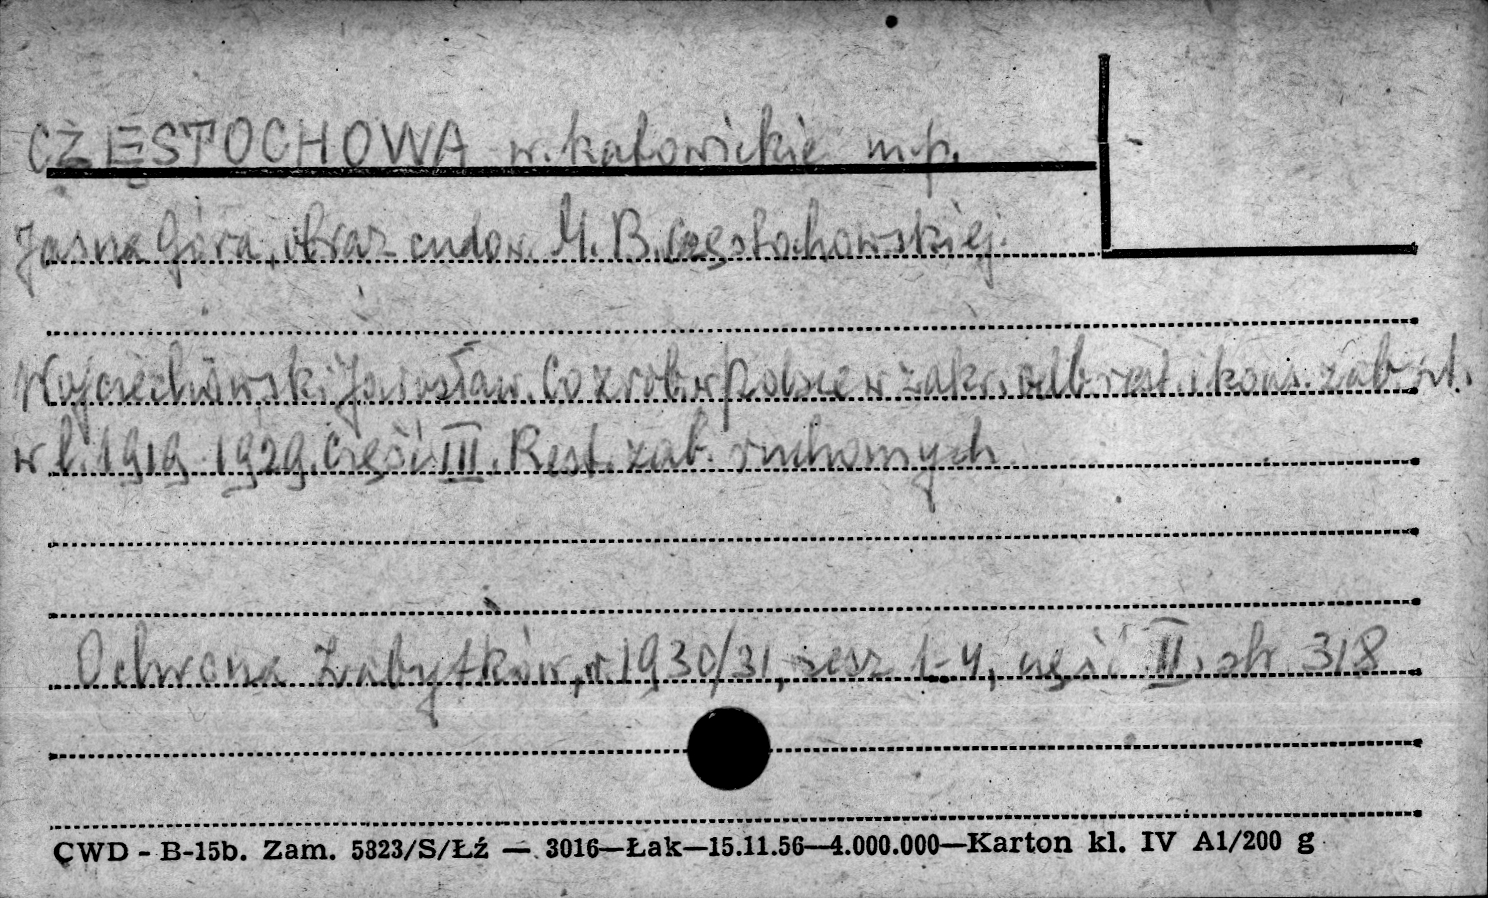 CZĘSTOCHOWA w. katowickie m.p.
Jasna Góra, obraz cudow. M. B. Częstochowskiej.
Wojciechowski Jarosław. Co zrob. w Polsce w zakr. odb. rest. i kons. zab. szt.
w l. 1919 1929. Część III. Rest. zab. ruchomych
Ochrona Zabytków, r. 1930/31, zesz 1-4, część II, str. 318
CWD - B-15b. Zam. 5823/S/Łź — 3016—Łak—15.11.56—4.000.000—Karton kl. IV A1/200 g